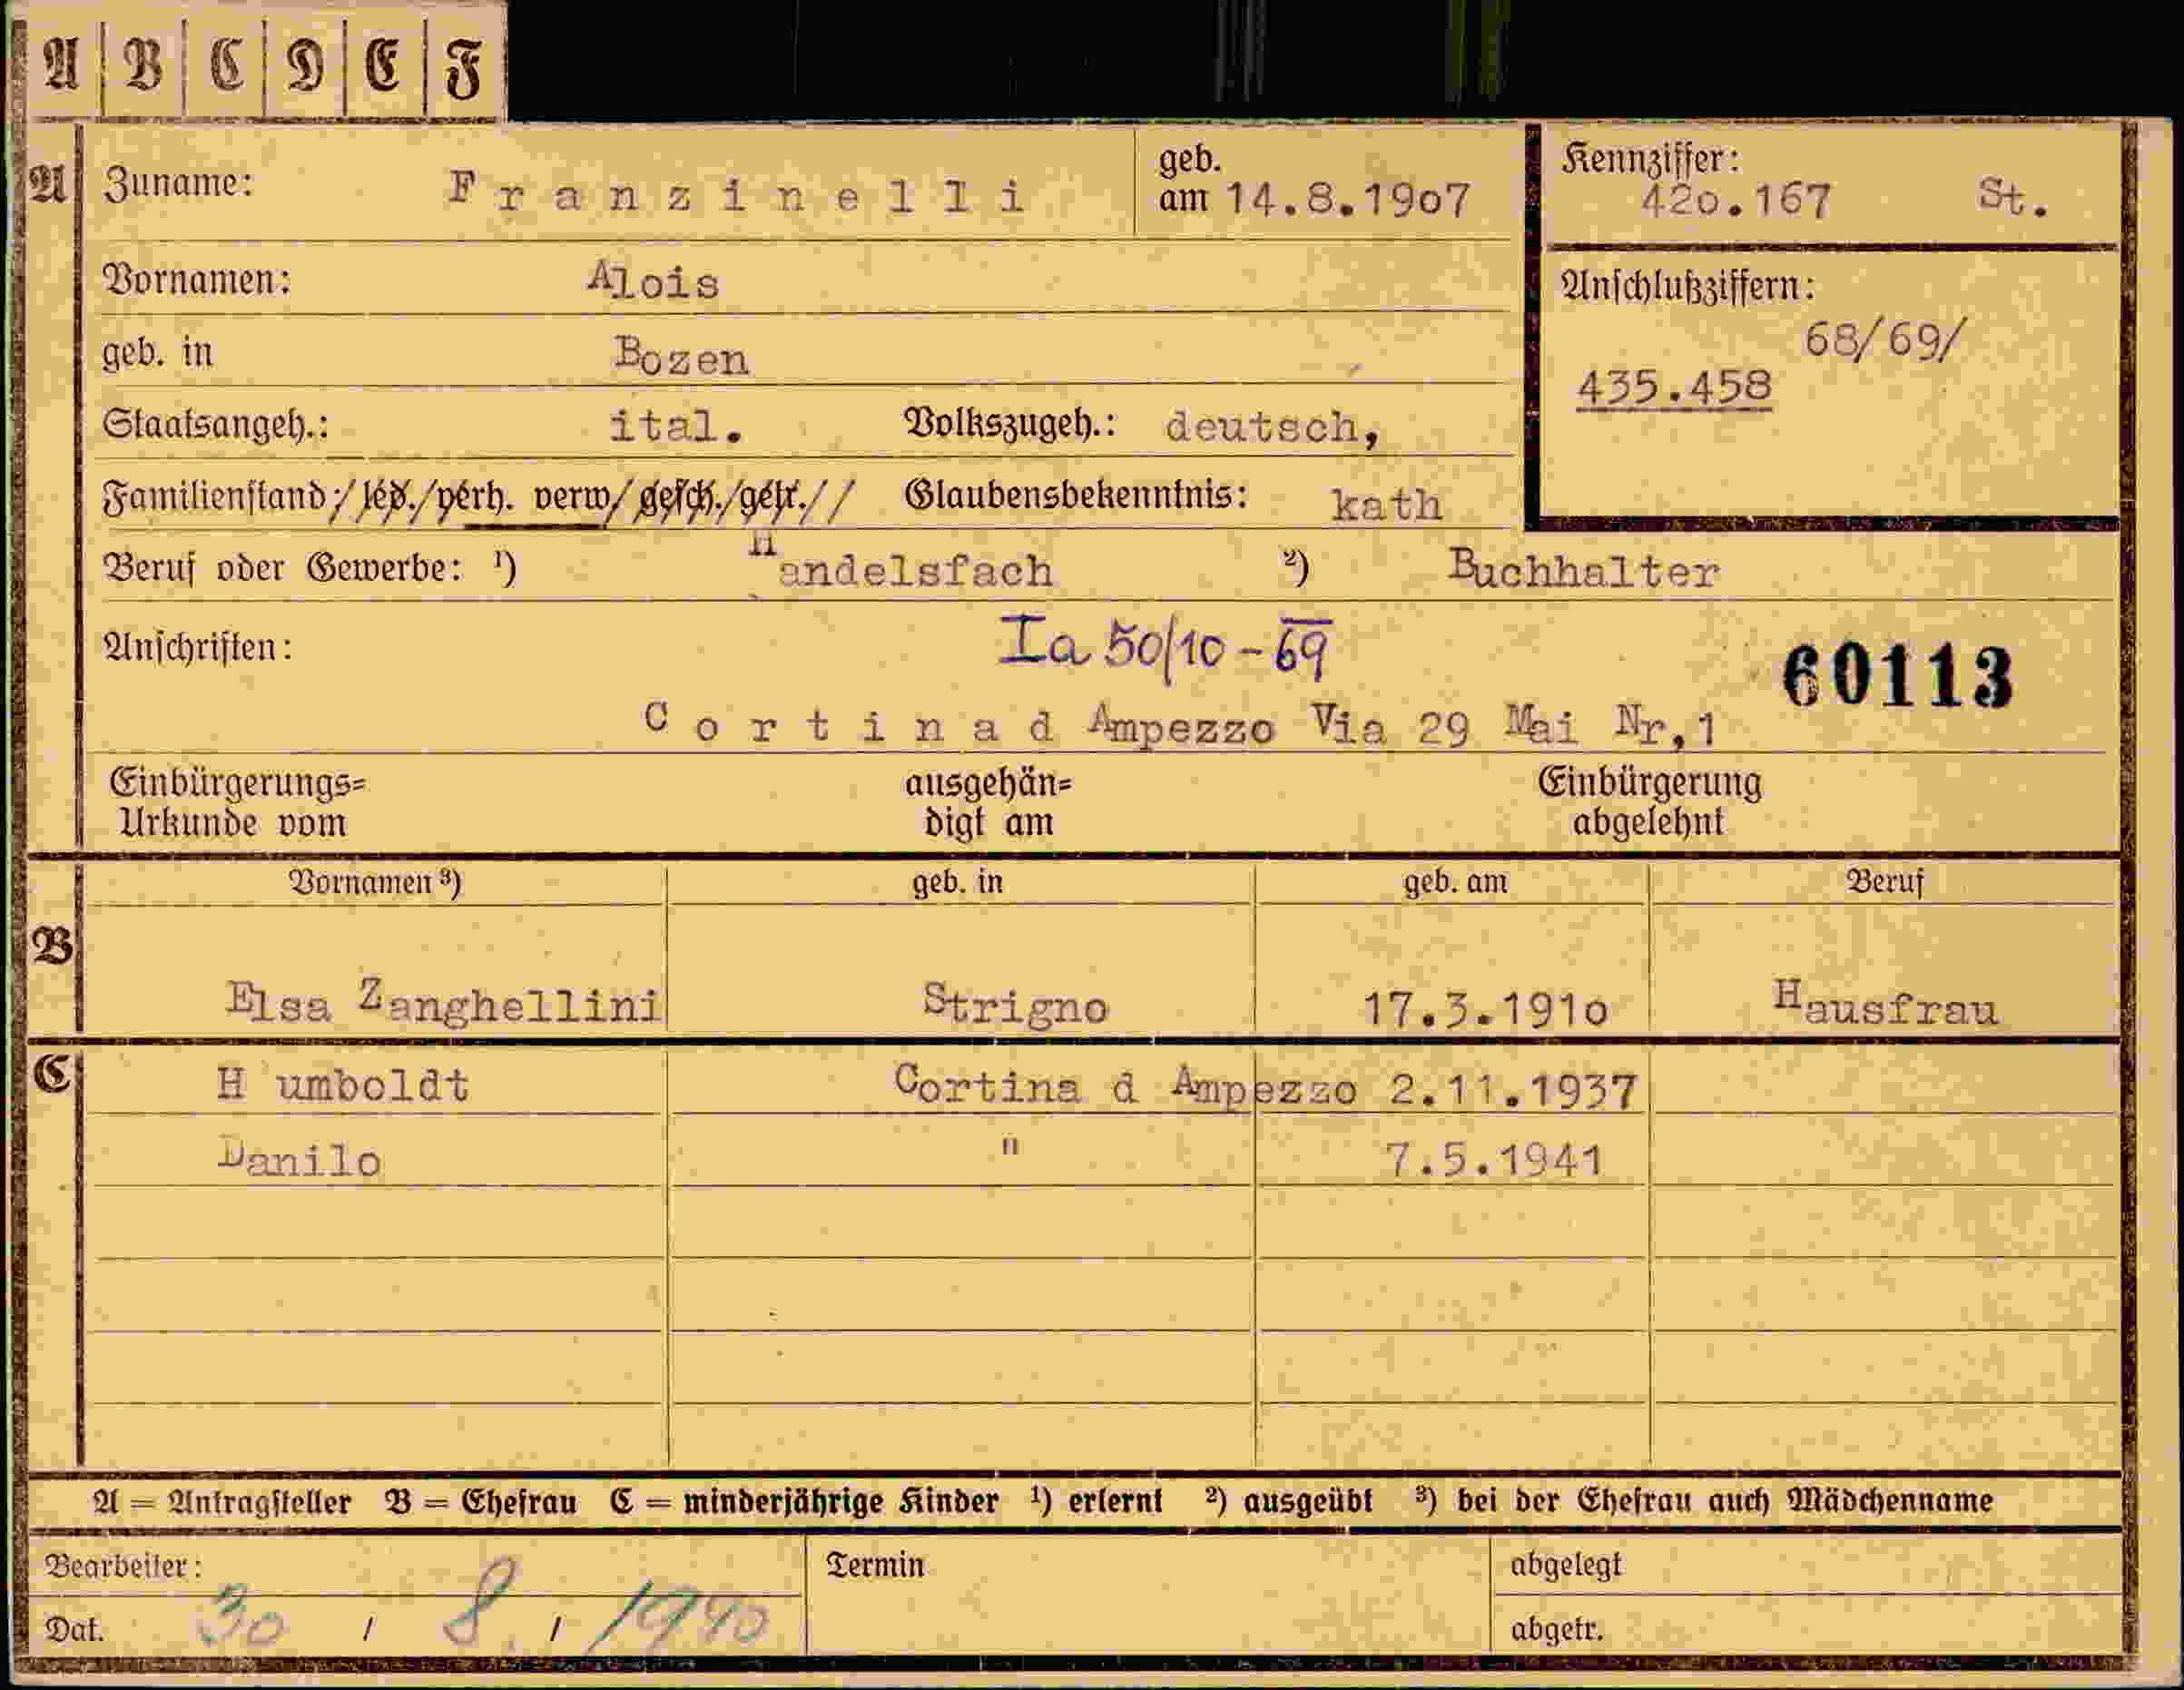 A B C D E F
A Zuname: Franzinelli geb. am 14.8.1907 Kennziffer: 420.167 St.
Vornamen: Alois Anschlußziffern:
68/69/
geb. in Bozen 435.458
Staatsangeh.: ital. Volkszugeh.: deutsch,
Familienstand:/ led./verh. verw/ gesch./getr.// Glaubensbekenntnis: kath
Beruf oder Gewerbe: 1) Handelsfach 2) Buchhalter
Anschriften: Ia 50/10-69 60113
Cortina d Ampezzo Via 29 Mai Nr,1
Einbürgerungs= ausgehän= Einbürgerung
Urkunde vom digt am abgelehnt
Vornamen 3) geb. in geb. am Beruf
B
Elsa Zanghellini Strigno 17.3.1910 Hausfrau
C H umboldt Cortina d Ampezzo 2.11.1937
Danilo " 7.5.1941
A = Antragsteller B = Ehefrau C = minderjährige Kinder 1) erlernt 2) ausgeübt 3) bei der Ehefrau auch Mädchenname
Bearbeiter: Termin abgelegt
Dat. 30 / 8. / 1990 abgetr.